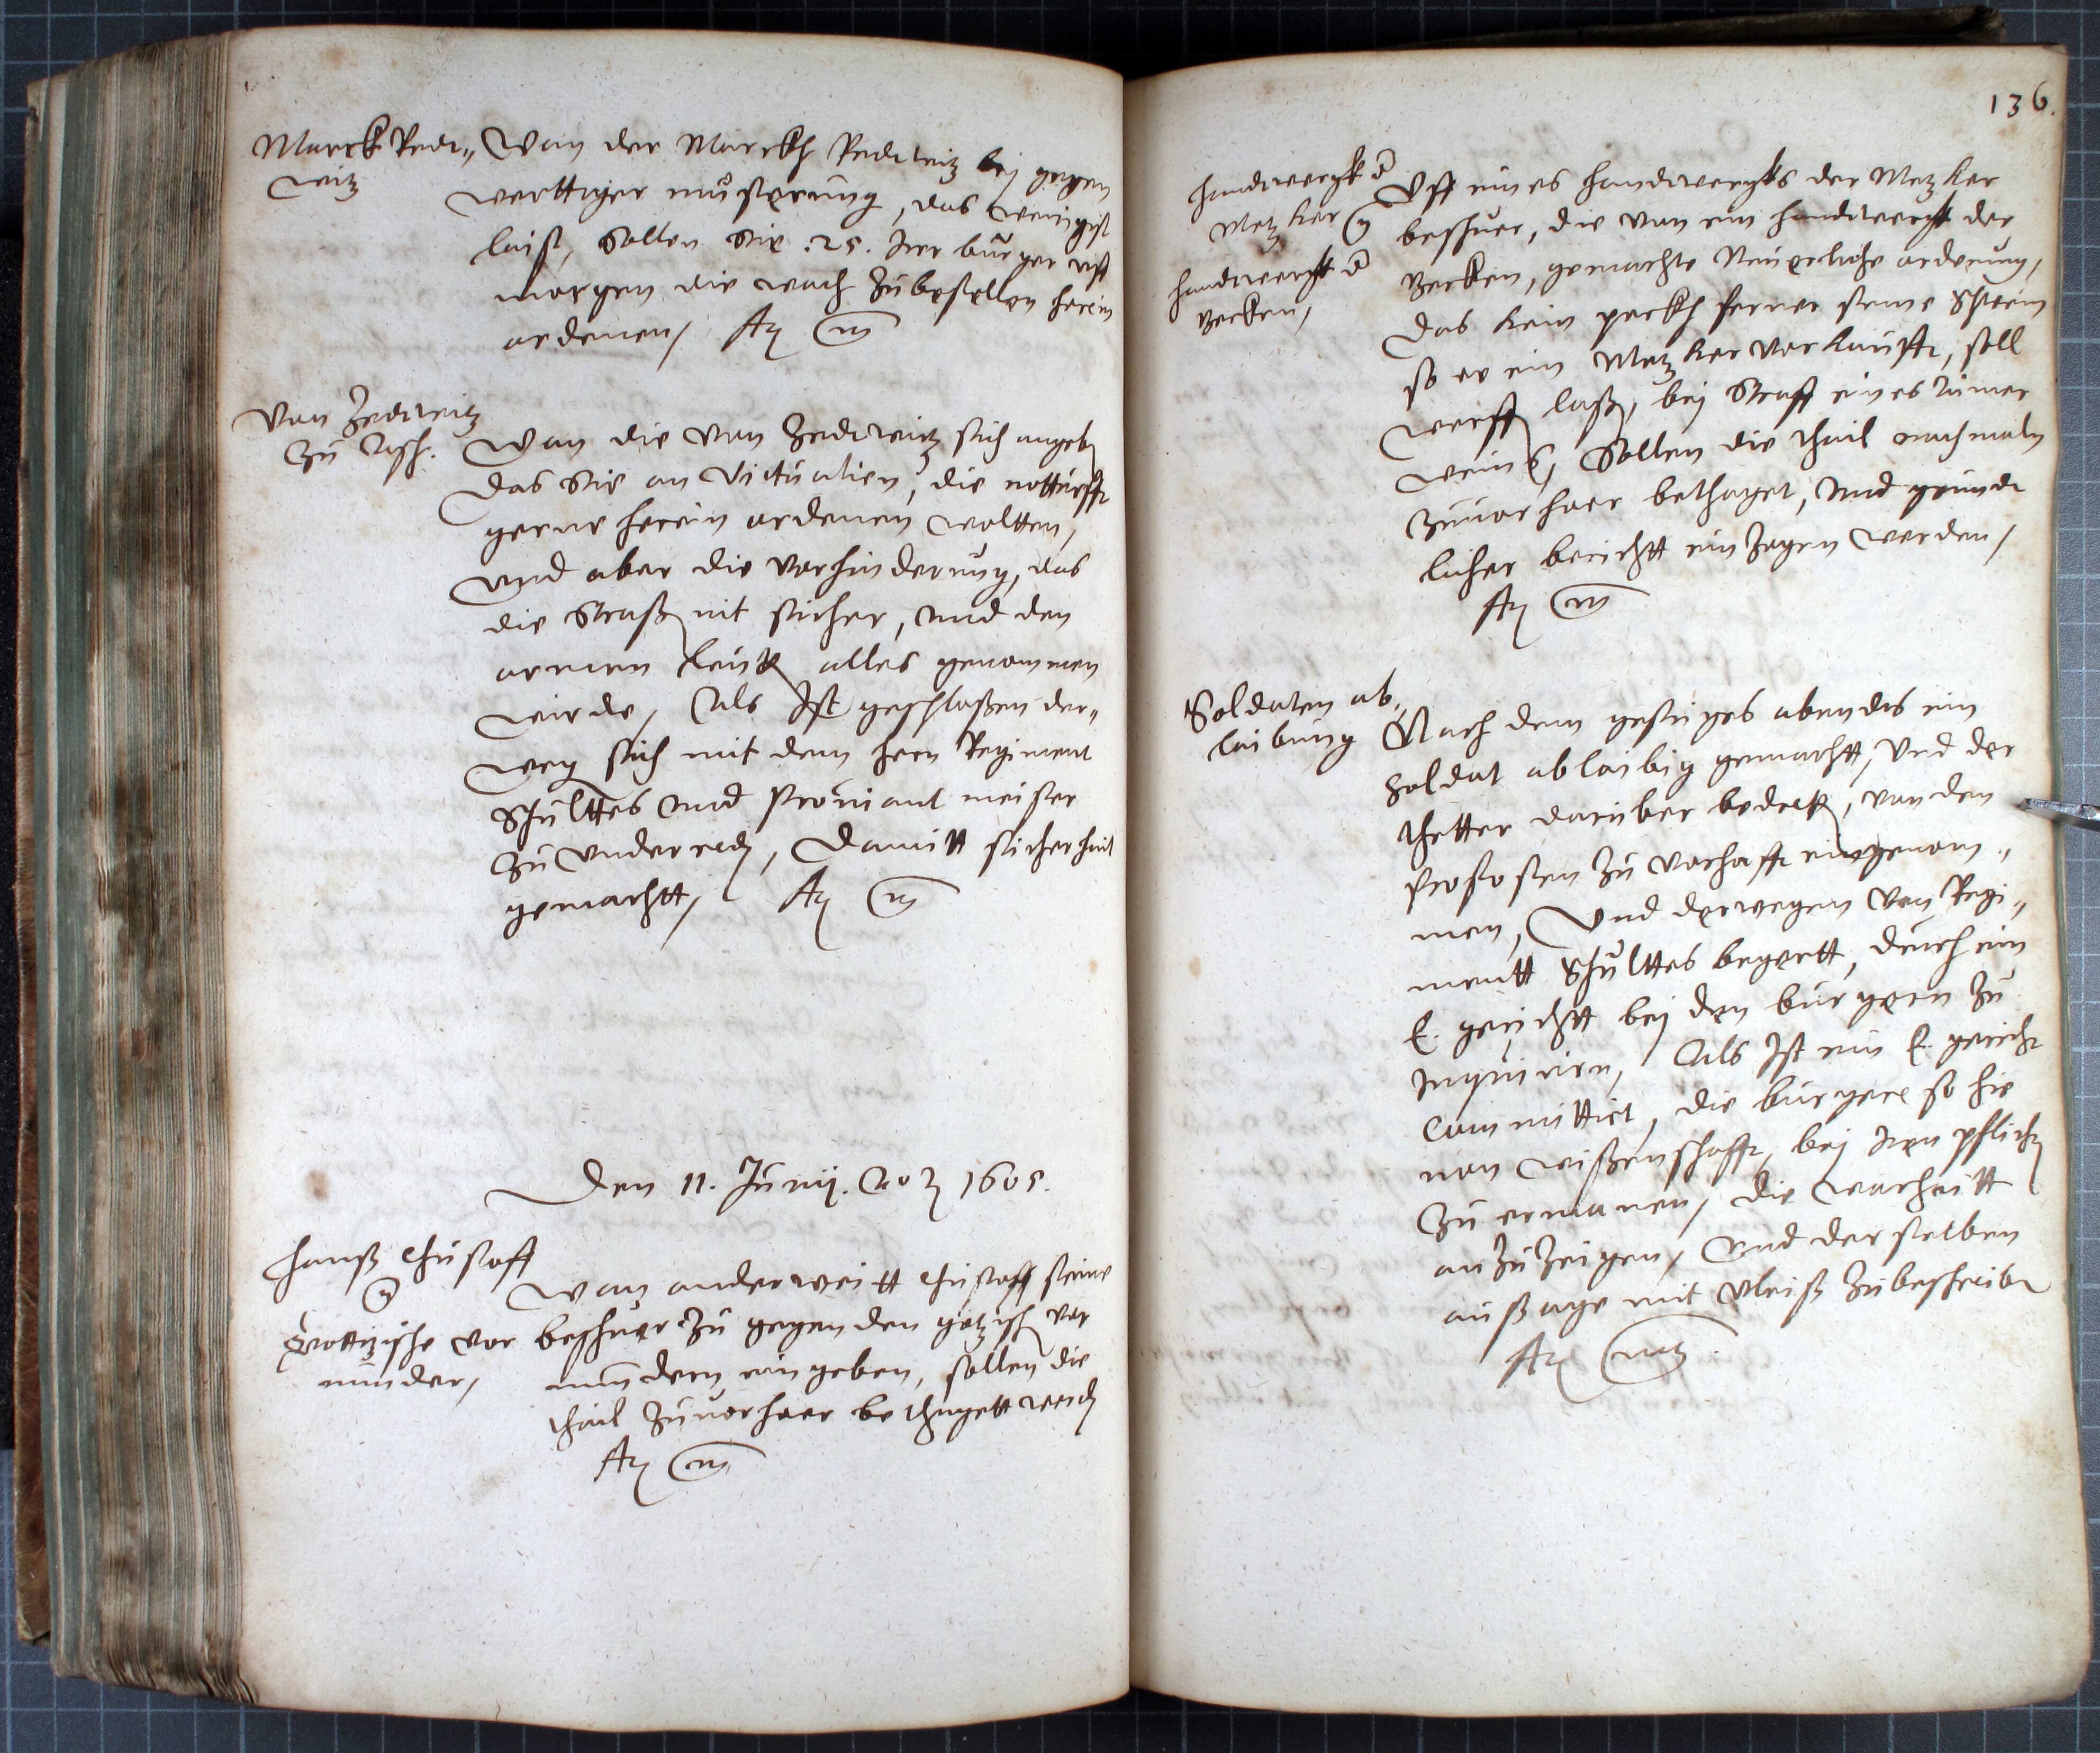 Marck Redt„
witz
Wan der Marckh Redtwitz bej gegen
werttiger musterung, das wenigist
laist, Sollen Sie .25. Irer burger uff
morgen die wach Zubestellen herein
ordenen,
Von Zedtwitz
Zu Asch.
Wan die von Zedtwitz sich angeb
das Sie an Victualien, die notturfft
gerne herein ordenen woltten,
vnd aber die verhinderung, das
die Straß nit sicher, vnd den
armen leuten alles genommen
wirde, Als Ist geschloßen der„
weg sich mit dem hern Regiment
Schulttes vnd Profiant meister
zu vnderreden, Damitt sicherheit
gemachtt,
Den 11. Junij. Ao 1605.
Hanß
vor
munder,
Wan anderweitt seine
beschwer Zu gegen den vor
mundern eingeben, sollen die
thail Zuuorhoer betagett werden
136.
Handtwergk d
Metzker
Handtwergk d
Becken,
Uff eines Handtwergks der Metzker
beschwer, die von eim handtwergk der
Becken, gemachte Neuerliche ordenung,
Das kein peckh ferner seine Schwein
so er eim Metzker verkaufft, soll
werffen laßen, bej Straff eines Eimer
weins, Sollen die thail nachmaln
Zuuorhoer bethaget, vnd gründt
licher berichtt einzogen werden,
Soldaten ab„
laibung
Nach dem gestriges abendts ein
Soldat ablaibig gemachtt, vnd der
thetter daruber bedretten, von dem
Profosen Zu verhafft eingenom„
men, Vnd derwegen von Regi„
mentt Schulttes begertt, durch ein
E. gerichtt bej den burgern Zu
Inquiriren, Als Ist ein E. gericht
Committiert, die burgere so hie
von wißenschafft, bej Iren pflichten
Zu ermanen, die warheitt
anzuzeigen, vnd derselben
aussage mit vleiß Zubeschreiben